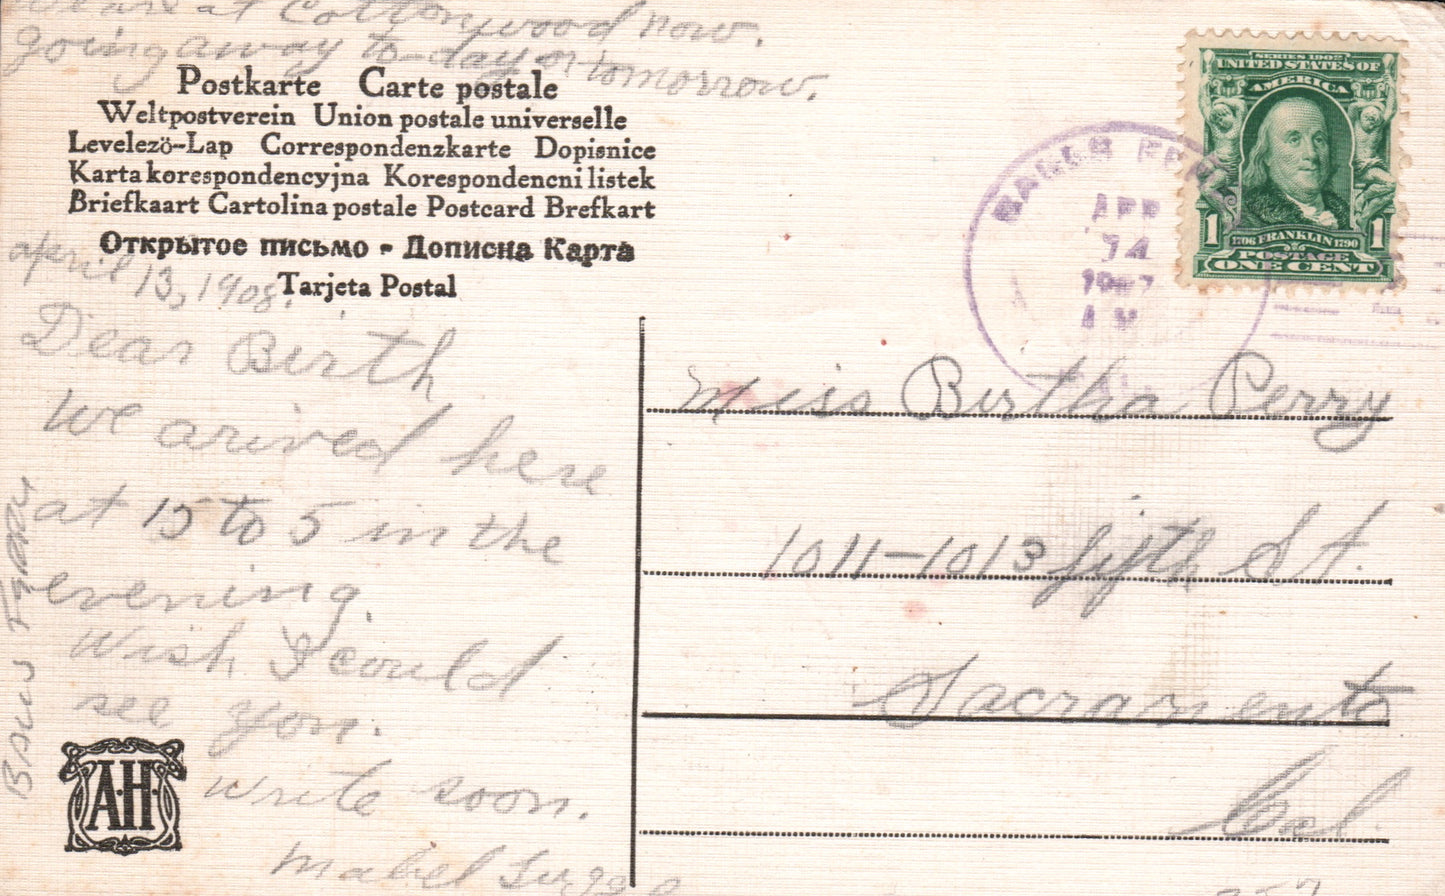 We are at Cottonwood now.
going away to-day or tomorrow.
Postkarte Carte postale
Weltpostverein Union postale universelle
Levelezö-Lap Correspondenzkarte Dopisnice
Karta korespondencyjna Korespondencni listek
Briefkaart Cartolina postale Postcard Brefkart
Открытое письмо - Дописна Карта
Tarjeta Postal
april 13, 1908.
Dear Birth
We arived here
at 15 to 5 in the
evening.
Wish I could
see you.
write soon.
Mabel
BALLS FERRY
A.H.
SERIES 1902
UNITED STATES OF
AMERICA
1 1
1706 FRANKLIN 1790
POSTAGE
ONE CENT
BALLS FERRY
APR
14
Miss Birtha Perry
1011-1013 fifth St.
Sacramento
Cal.